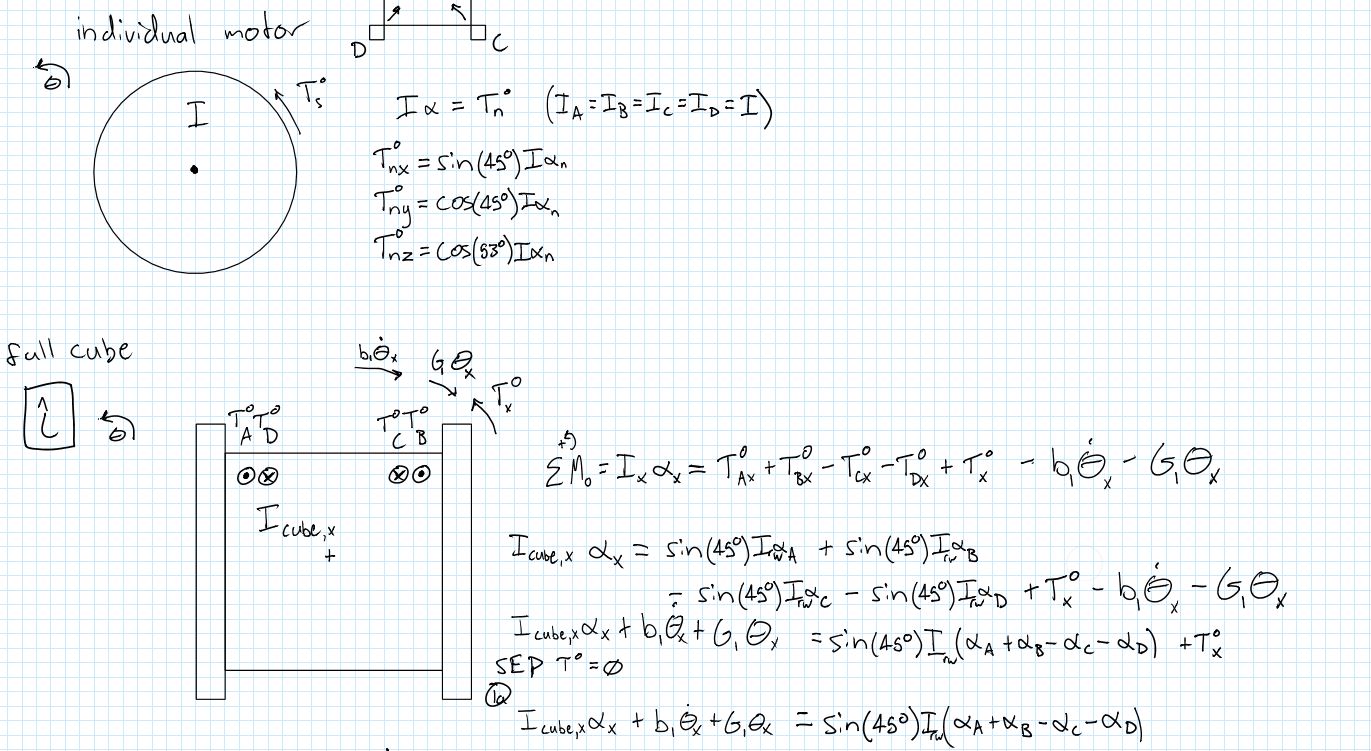 individual motor
D C
θ I T_s°
Iα = T_n° (I_A = I_B = I_C = I_D = I)
T_nx° = sin(45°)Iα_n
T_ny° = cos(45°)Iα_n
T_nz° = cos(53°)Iα_n
full cube
b₁θ̇_x Gθ_x T_x°
î θ
T_A° T_D° T_C° T_B°
I_cube,x
+
+↺ ΣM₀ = I_x α_x = T_Ax° + T_Bx° - T_Cx° - T_Dx° + T_x° - b₁θ̇_x - G₁θ_x
I_cube,x α_x = sin(45°)I_rw α_A + sin(45°)I_rw α_B
- sin(45°)I_rw α_C - sin(45°)I_rw α_D + T_x° - b₁θ̇_x - G₁θ_x
I_cube,x α_x + b₁θ̇_x + G₁θ_x = sin(45°)I_rw(α_A + α_B - α_C - α_D) + T_x°
SEP T° = ∅
1a
I_cube,x α_x + b₁θ̇_x + G₁θ_x = sin(45°)I_rw(α_A + α_B - α_C - α_D)